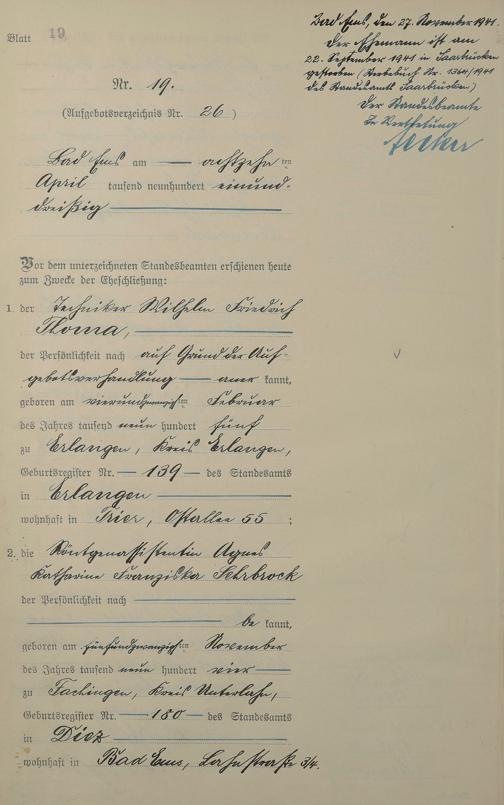 Blatt 19
Bad Ems, den 27. November 1941.
Der Ehemann ist am
22. September 1941 in Saarbrücken
gestorben (Sterbebuch Nr. 1364/1941
des Standesamts Saarbrücken.)
Der Standesbeamte
In Vertretung
Nr. 19.
(Aufgebotsverzeichnis Nr. 26)
Bad Ems am achtzehn ten
April tausend neunhundert einund-
dreißig
Vor dem unterzeichneten Standesbeamten erschienen heute
zum Zwecke der Eheschließung:
1. der Techniker Wilhelm Friedrich
Thoma,
der Persönlichkeit nach auf Grund der Auf-
gebotsverhandlung aner kannt,
geboren am vierundzwanzigsten Februar
des Jahres tausend neun hundert fünf
zu Erlangen, Kreis Erlangen,
Geburtsregister Nr. 139 des Standesamts
in Erlangen
wohnhaft in Trier, Ostallee 55 ;
2. die Röntgenassistentin Agnes
Katharina Franziska Sehrbrock
der Persönlichkeit nach
be kannt,
geboren am fünfundzwanzigsten November
des Jahres tausend neun hundert vier
zu Fachingen, Kreis Unterlahn,
Geburtsregister Nr. 180 des Standesamts
in Diez
wohnhaft in Bad Ems, Lahnstraße 3/4.